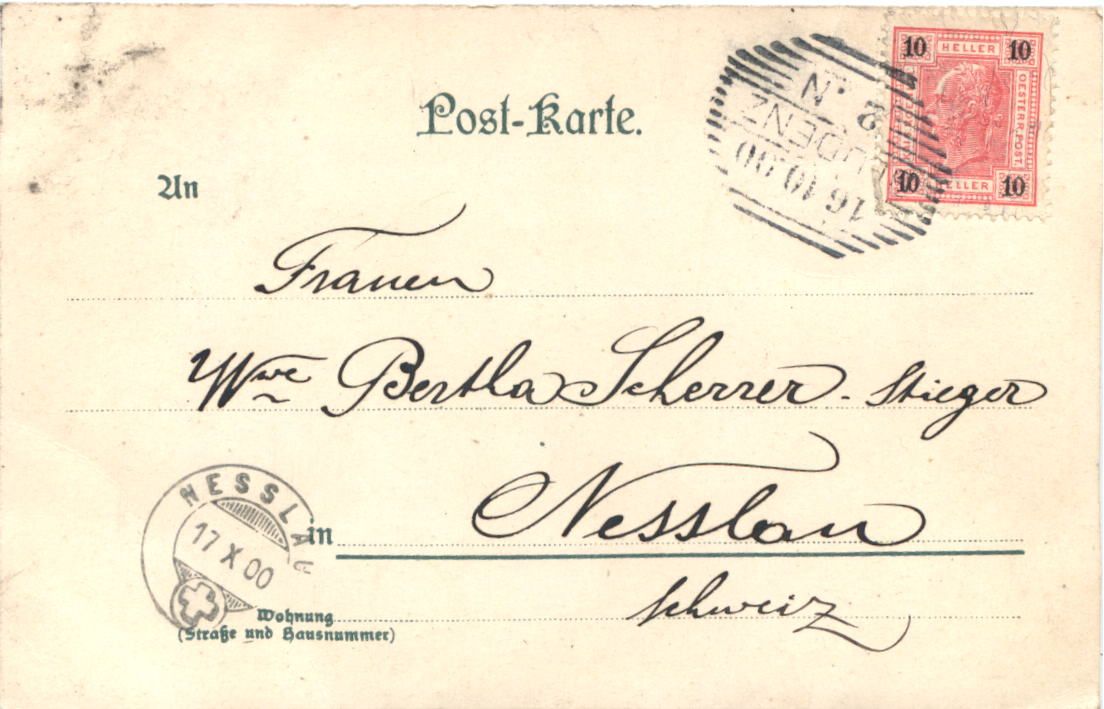 Post-Karte.
10 HELLER 10
OESTERR.POST.
10 HELLER 10
2 .N
BLUDENZ
16 10 00
An
Frauen
Wwe Bertha Scherrer - Stieger
in Nesslau
Schweiz
NESSLAU
17 X 00
Wohnung
(Straße und Hausnummer)